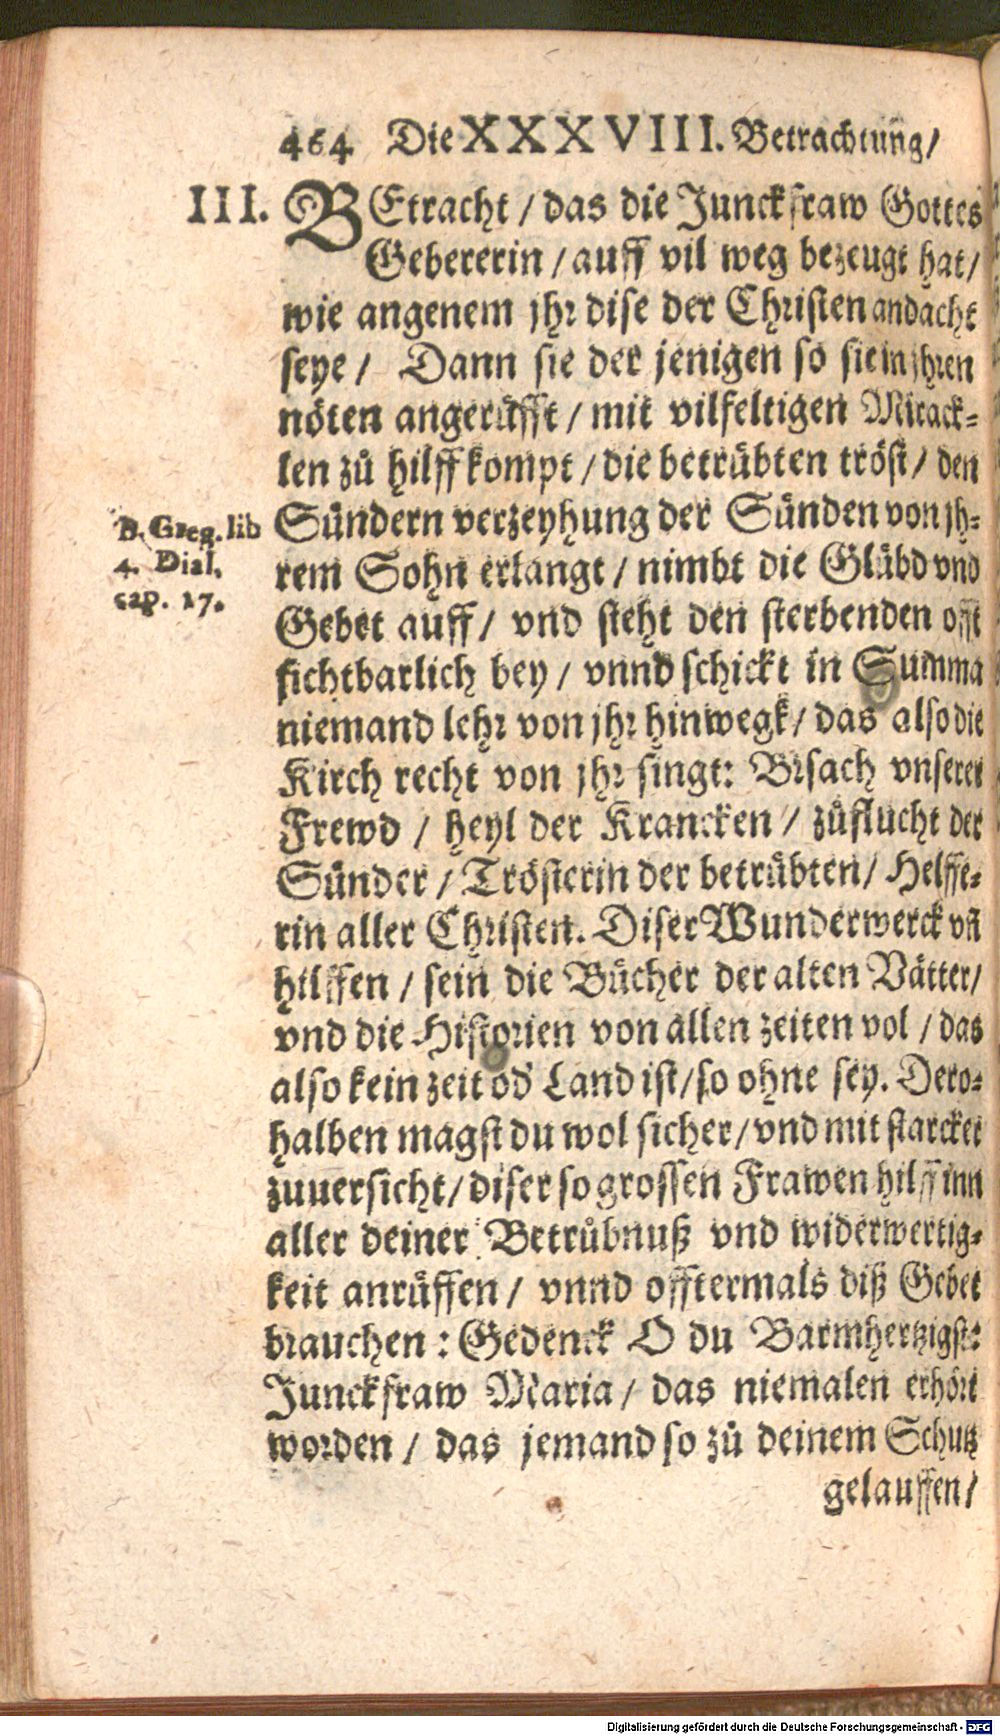 464 Die XXXVIII. Betrachtung/
III. BEtracht / das die Junckfraw Gottes
Gebererin / auff vil weg bezeugt hat/
wie angenem jhr dise der Christen andacht
seye / Dann sie der jenigen so sie in jhren
nöten angerüfft / mit vilfeltigen Mirack-
len zů hilff kompt / die betrübten tröst / den
B. Greg. lib
4. Dial.
cap. 17.
Sündern verzeyhung der Sünden von jh-
rem Sohn erlangt / nimbt die Glübd vnd
Gebet auff / vnd steht den sterbenden offt
sichtbarlich bey / vnnd schickt in Summa
niemand lehr von jhr hinwegk / das also die
Kirch recht von jhr singt: Vrsach vnserer
Frewd / heyl der Krancken / zůflucht der
Sünder / Trösterin der betrübten / Helffe-
rin aller Christen. Diser Wunderwerck vñ
hilffen / sein die Bücher der alten Vätter/
vnd die Historien von allen zeiten vol / das
also kein zeit od Land ist/so ohne sey. Dero-
halben magst du wol sicher/vnd mit starcker
zuuersicht/diser so grossen Frawen hilff inn
aller deiner Betrübnuß vnd widerwertig-
keit anrüffen / vnnd offtermals diß Gebet
brauchen : Gedenck O du Barmhertzigste
Junckfraw Maria / das niemalen erhört
worden / das jemand so zů deinem Schutz
gelauffen/
Digitalisierung gefördert durch die Deutsche Forschungsgemeinschaft - DFG